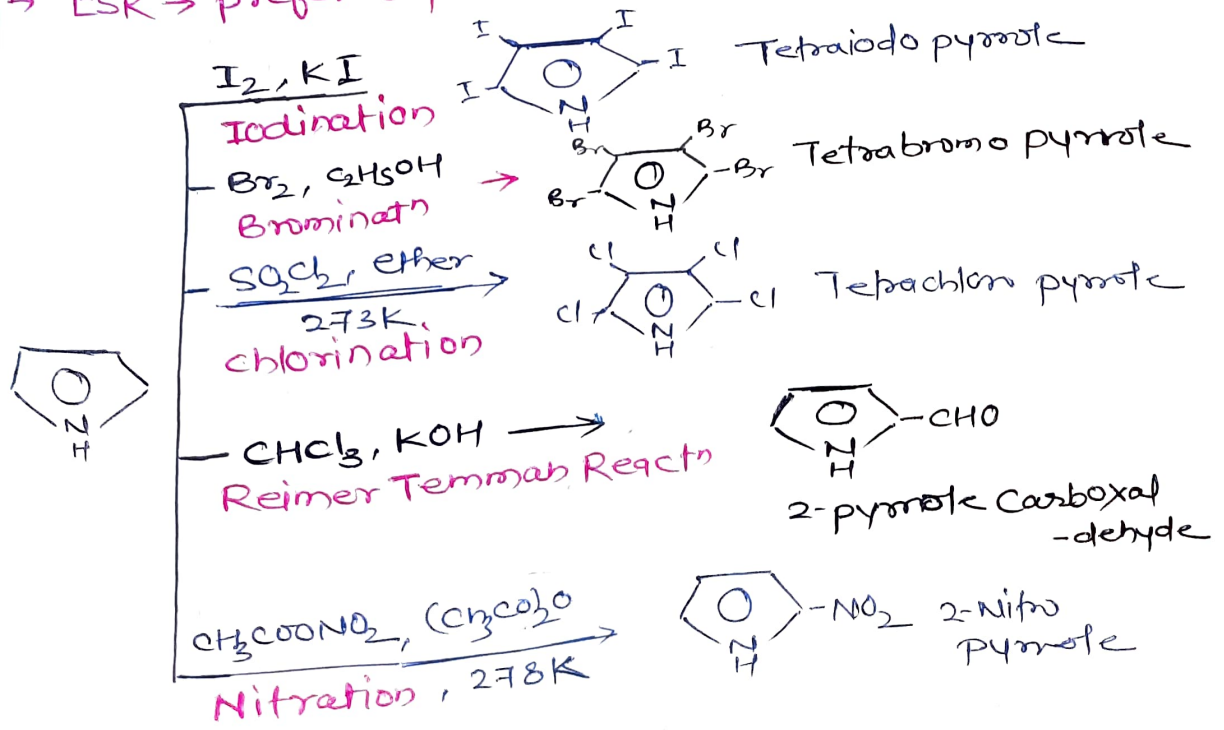 → ESR → prefer
I₂, KI
Iodination
I I I I N H
Tetraiodo pyrrole
Br₂, C₂H₅OH →
Brominatn
Br Br Br Br N H
Tetrabromo pyrrole
SO₂Cl₂, ether
273K.
Chlorination
Cl Cl Cl Cl N H
Tetrachloro pyrrole
N H
CHCl₃, KOH →
Reimer Temman Reactn
N H -CHO
2-pyrrole Carboxal
-dehyde
CH₃COONO₂, (CH₃CO)₂O
Nitration, 278K
N H -NO₂
2-Nitro
pyrrole